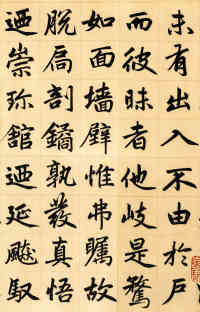 未有出入不由於戶
而彼昧者他岐是騖
如面墙壁惟弗矚故
脫扃剖鐍孰發真悟
迺崇珎舘迺延飈馭